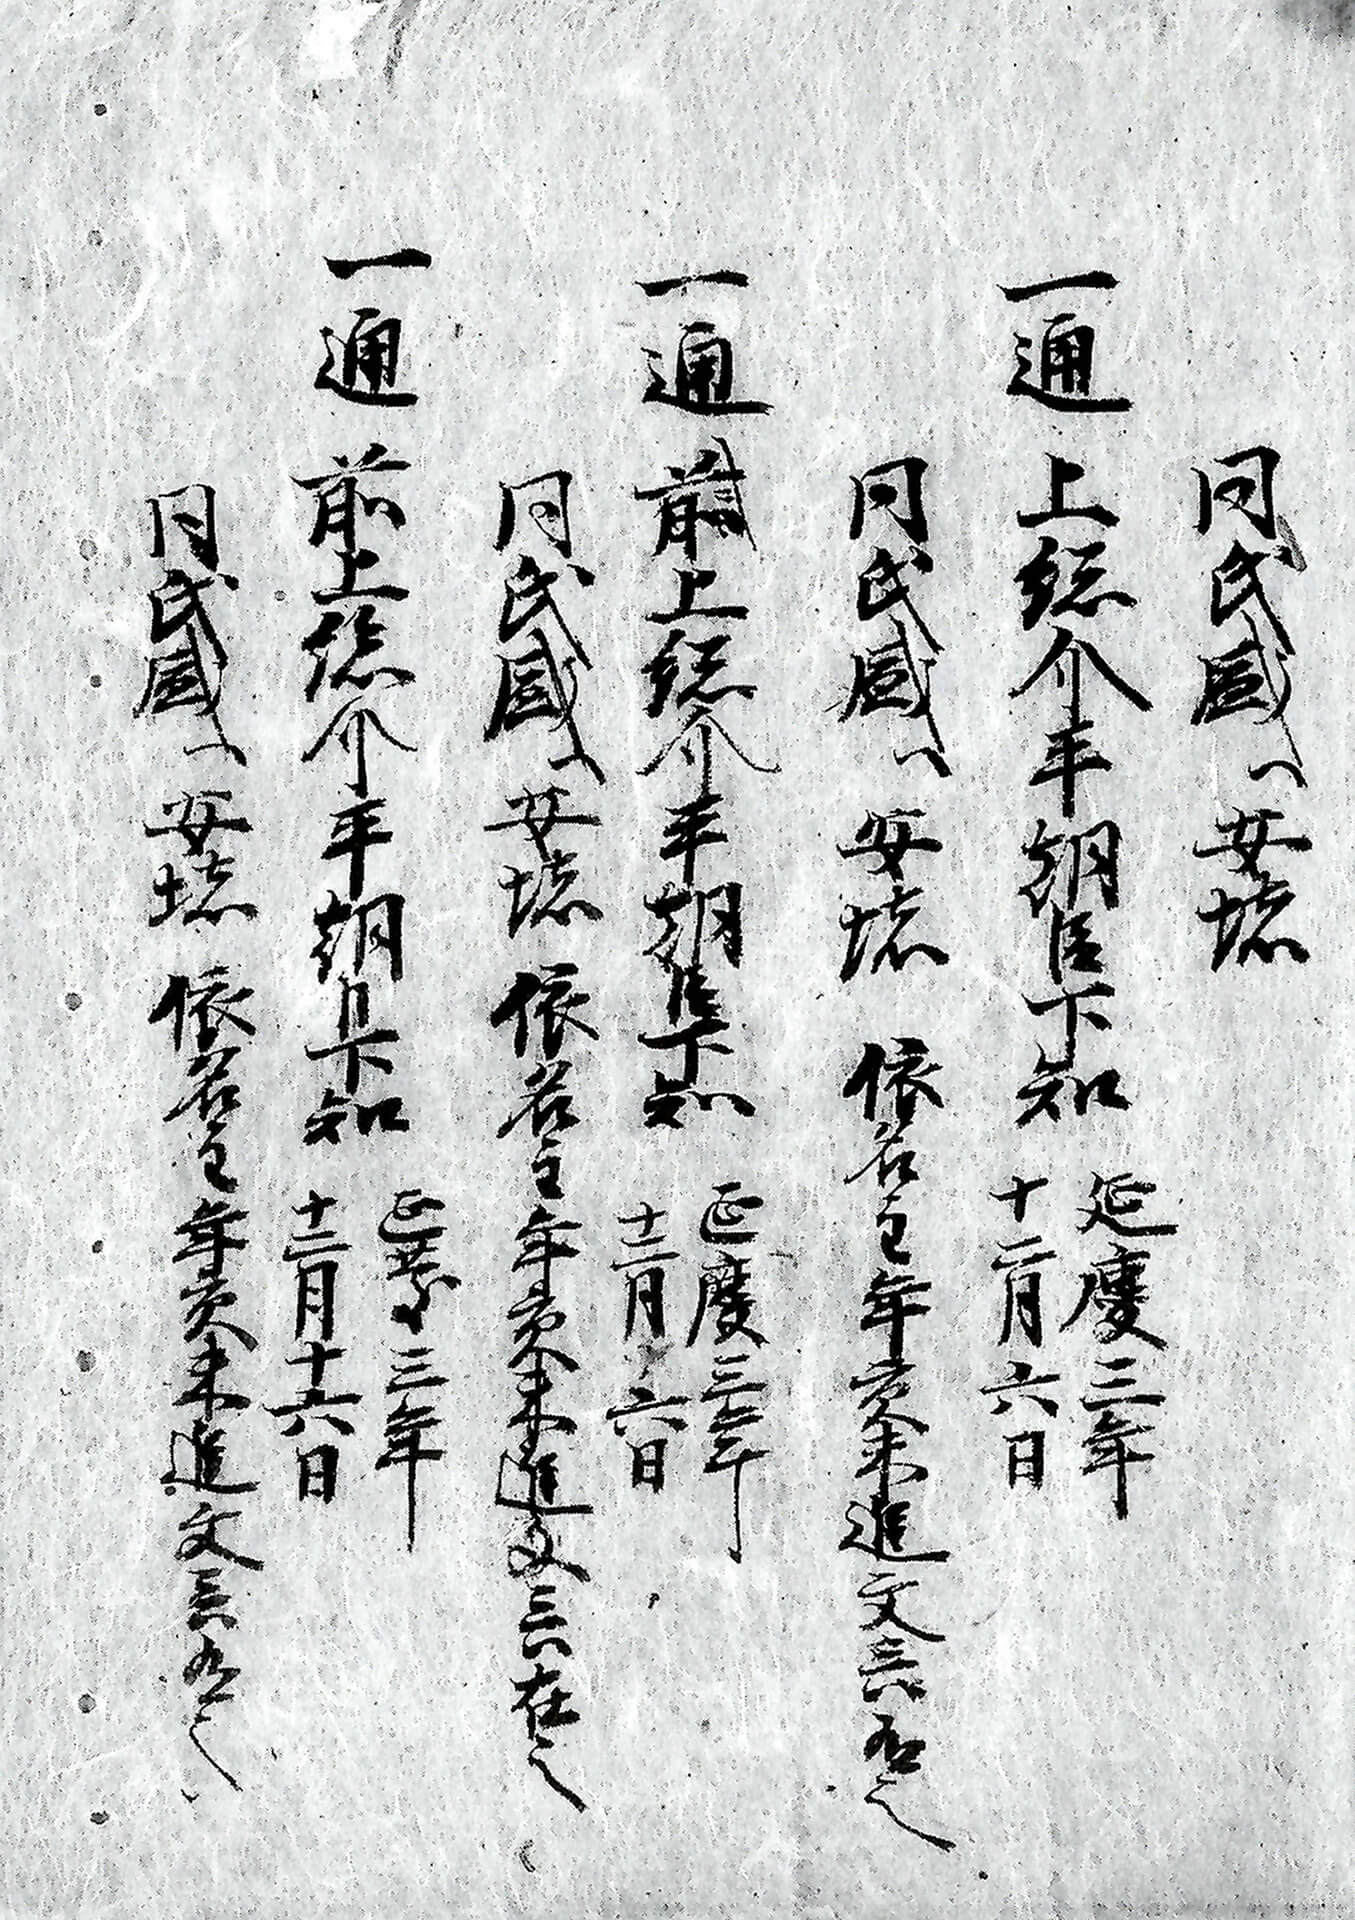 同氏盛へ安堵
一通 上総介平朝臣下知 延慶三年
十二月六日
同氏盛へ安堵 依名主年貢未進文言在之
一通 前上総介平朝臣下知 延慶三年
十二月六日
同氏盛へ安堵 依名主年貢未進文言在之
一通 前上総介平朝臣下知 延慶三年
十二月十六日
同氏盛へ安堵 依名主年貢未進文言在之